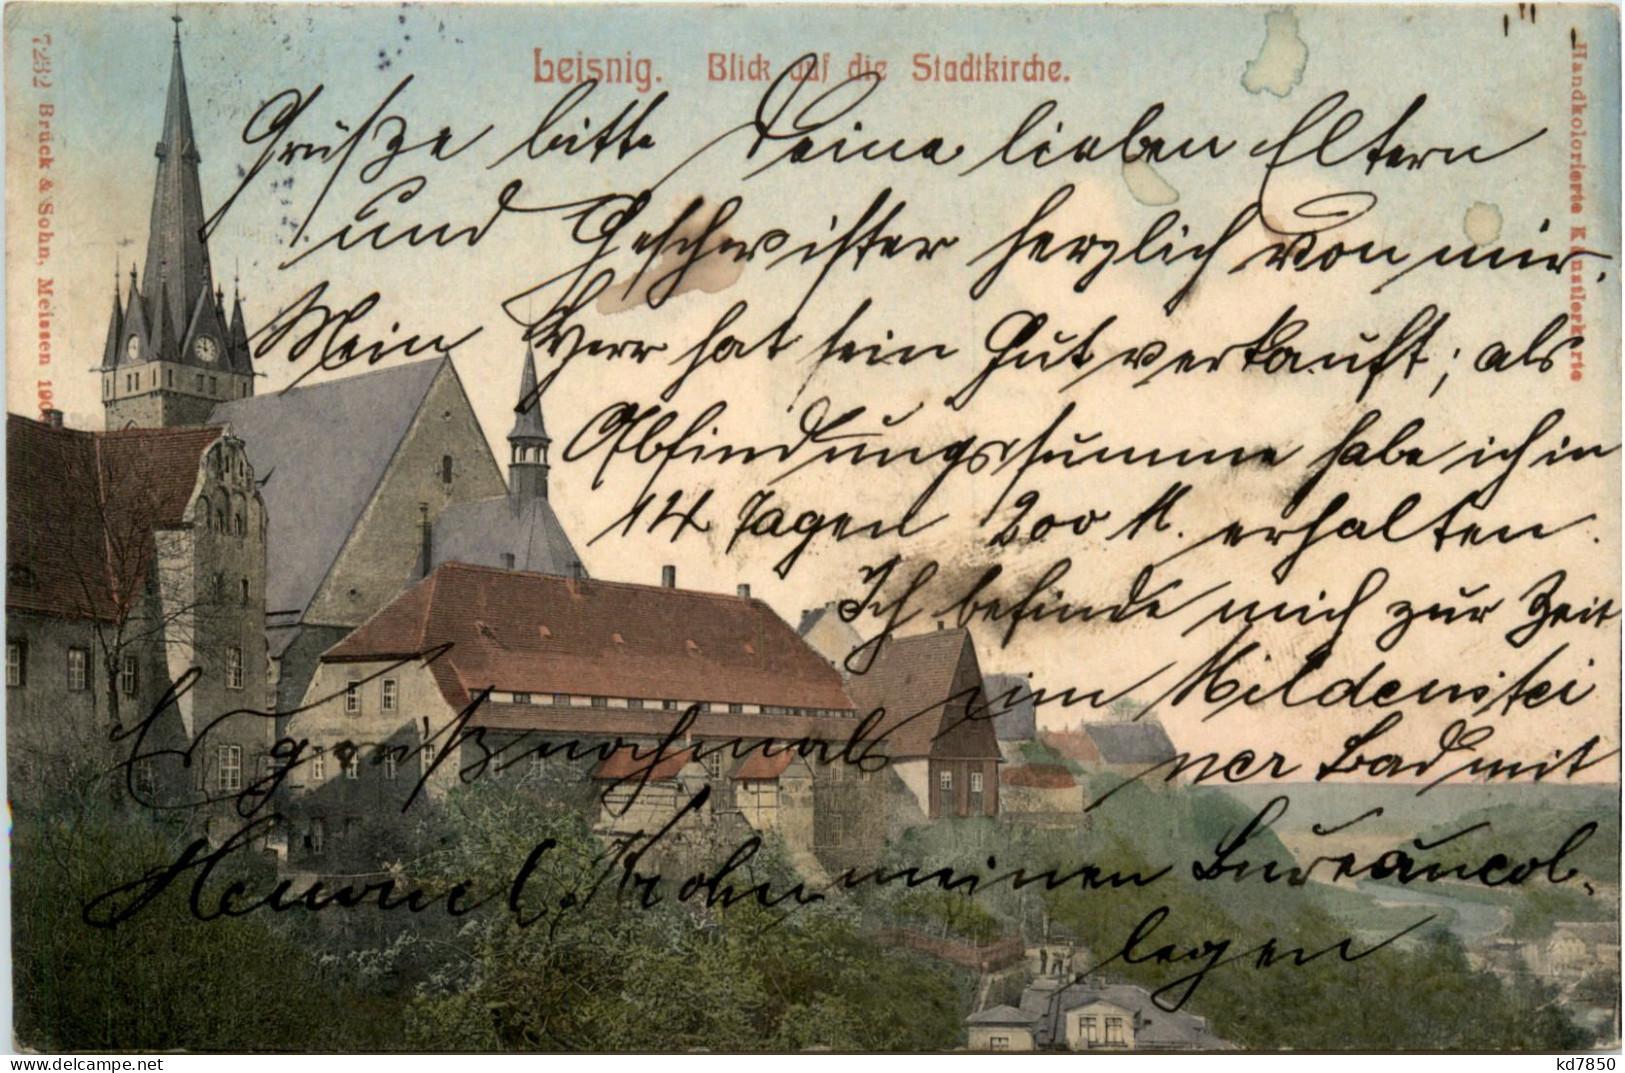 Leisnig. Blick auf die Stadtkirche.
7252 Brück & Sohn, Meissen 190
Handkolorierte Künstlerkarte
Grüße bitte Deine lieben Eltern
und Geschwister herzlich von mir.
Mein Herr hat sein Gut verkauft; als
Abfindungssumme habe ich in
14 Tagen 200 M. erhalten.
Ich befinde mich zur Zeit
im Mildenstei
ner Bad mit
meinen Bureaucol-
legen
Es grüßt nochmals
Krohn
kd7850